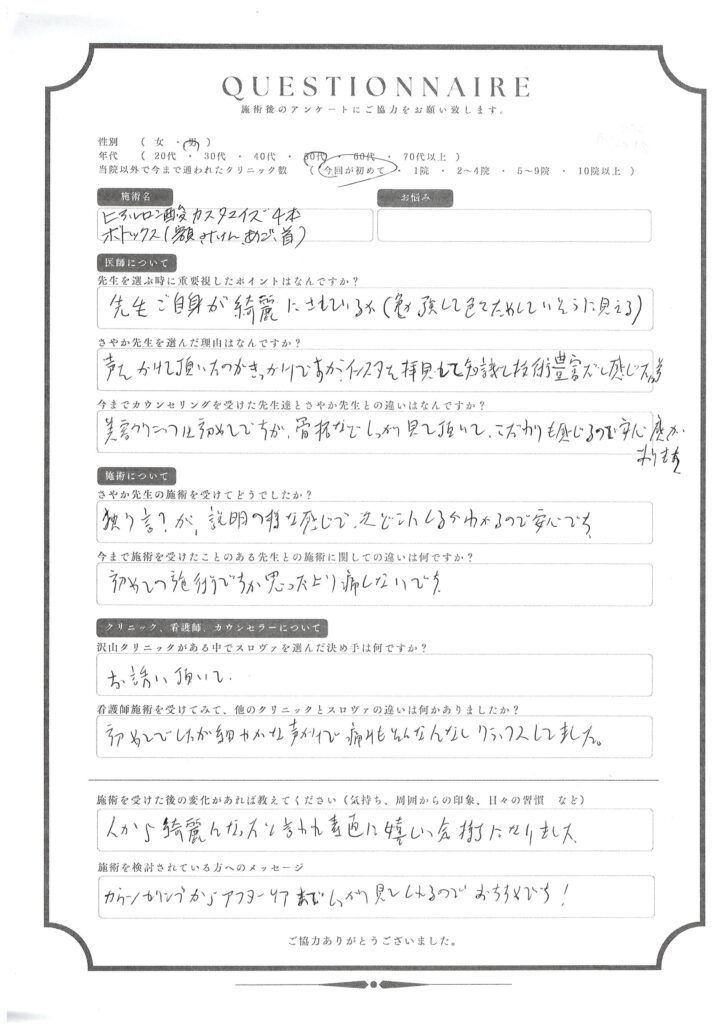 QUESTIONNAIRE
施術後のアンケートにご協力をお願い致します。
性別 ( 女 ・ 男 )
年代 ( 20代 ・ 30代 ・ 40代 ・ 50代 ・ 60代 ・ 70代以上 )
当院以外で今まで通われたクリニック数 ( 今回が初めて ・ 1院 ・ 2〜4院 ・ 5〜9院 ・ 10院以上 )
施術名
お悩み
ヒアルロン酸カスタマイズ4本
ボトックス(額、みけん、あご、首)
医師について
先生を選ぶ時に重要視したポイントはなんですか?
先生ご自身が綺麗にされているか(勉強して色々ためしていそうに見える)
さやか先生を選んだ理由はなんですか?
声をかけて頂いたのがきっかけですが、インスタを拝見して知識と技術豊富だと感じた為
今までカウンセリングを受けた先生達とさやか先生との違いはなんですか?
美容クリニックは初めてですが、骨格などしっかり見て頂いて、こだわりも感じるので安心感が
あります
施術について
さやか先生の施術を受けてどうでしたか?
独り言?が、説明の様な感じで、次どこにしるかわかるので安心です。
今まで施術を受けたことのある先生との施術に関しての違いは何ですか?
初めての施術ですが思ったより痛くないです。
クリニック、看護師、カウンセラーについて
沢山クリニックがある中でスロヴァを選んだ決め手は何ですか?
お誘い頂いて。
看護師施術を受けてみて、他のクリニックとスロヴァの違いは何かありましたか?
初めてでしたが細やかな声かけで痛みもそんなになくリラックスしてました。
施術を受けた後の変化があれば教えてください(気持ち、周囲からの印象、日々の習慣 など)
人から綺麗になったと言われ素直に嬉しい気持になりました
施術を検討されている方へのメッセージ
カウンセリングからアフターケアまでしっかり見てくれるのでおすすめです!
ご協力ありがとうございました。